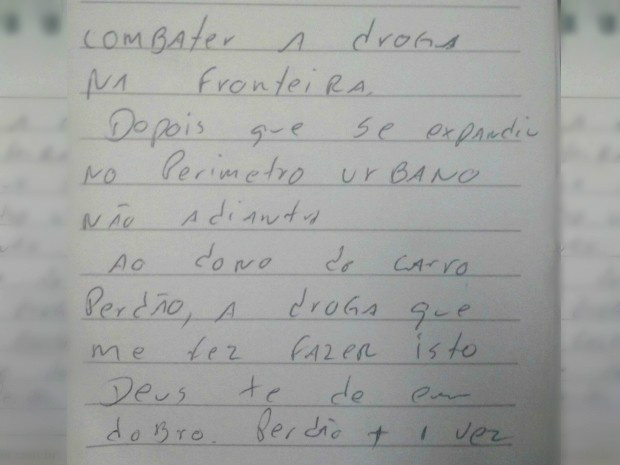 COMBATer A droGA
NA FronteiRA.
Depois que se expandiu
NO Perimetro UrBANO
NÃO AdiANtA
AO doNO do CArro
PerdÃo, A droGA que
me fez FAZER isto
Deus te de em
doBro. Perdão + 1 vez